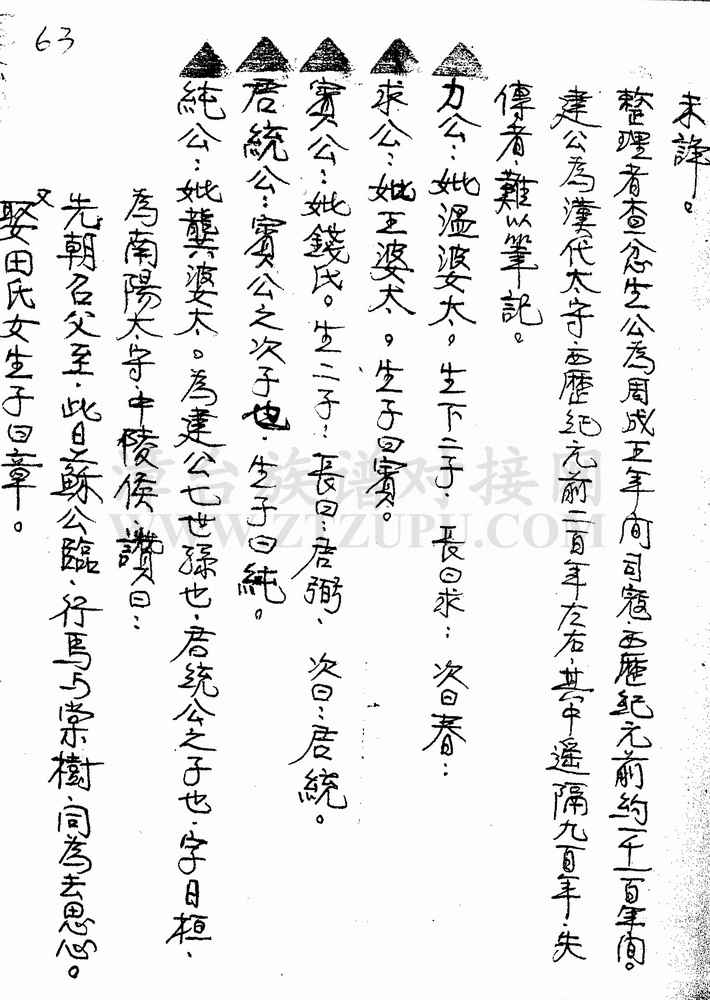 63
未詳。
整理者查忿生公為周成王年間司寇，西歷紀元前約一千一百年間。
建公為漢代太守，西歷紀元前一百年左右，其中遙隔九百年，失
傳者，難以筆記。
力公：妣溫婆太。生下二子，長曰求：次曰春：
求公：妣王婆太。生子曰賓。
賓公：妣錢氏。生二子：長曰：君弼、次曰：君統。
君統公：賓公之次子也，生子曰純。
純公：妣龔婆太。為建公七世孫也，君統公之子也，字曰桓、
為南陽太守，中陵侯 讚曰：
先朝召父至，此日蘇公臨，行馬与棠樹，同為去思心。
又娶田氏女生子曰章。
漳台族谱对接网
WWW.ZTZUPU.COM